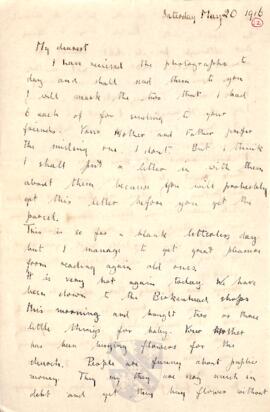 Saturday May 20 1916
(12)
My dearest
I have received the photographs to
day and shall send them to you
I will mark the two that I had
6 each of for sending to your
friends. Your Mother and Father prefer
the smiling one I don't. But I think
I shall put a letter in with them
about them, because you will probably
get this letter before you get the
parcel.
This is so far a blank letterless day
but I manage to get great pleasure
from reading again old ones.
It is very hot again today. We have
been down to the Birkenhead shops
this morning and bought two or three
little things for baby. Your Mother
has been buying flowers for the
church. People are funny about public
money They say they are very much in
debt and yet they buy flowers without